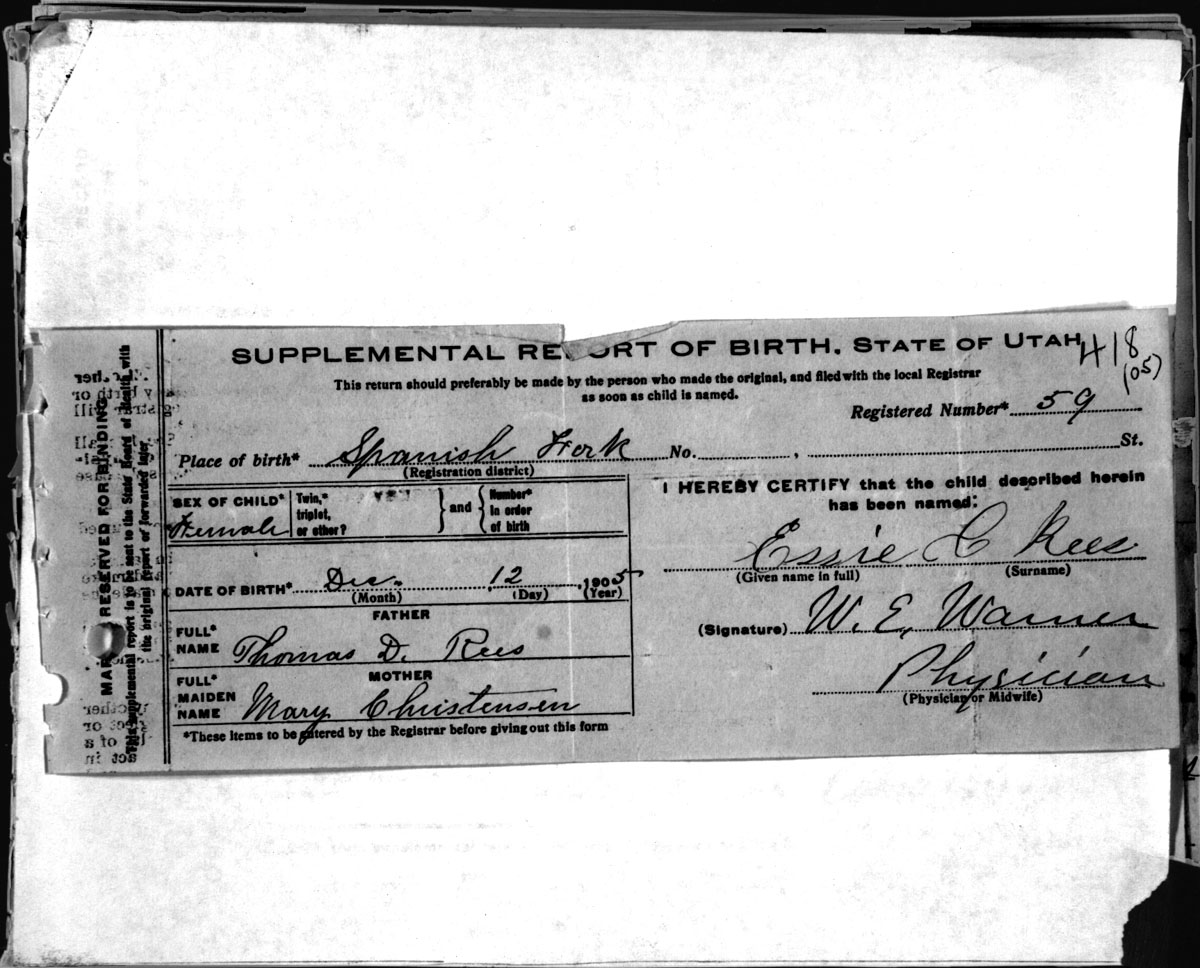 SUPPLEMENTAL REPORT OF BIRTH. STATE OF UTAH
418
(05)
This return should preferably be made by the person who made the original, and filed with the local Registrar
as soon as child is named.
Registered Number* 59
Place of birth* Spanish Fork No. , St.
(Registration district)
SEX OF CHILD* Female
Twin,*
triplet,
or other?
} and {
Number*
in order
of birth
DATE OF BIRTH* Dec. 12 , 1905
(Month) (Day) (Year)
FATHER
FULL*
NAME Thomas D. Rees
MOTHER
FULL*
MAIDEN
NAME Mary Christensen
*These items to be entered by the Registrar before giving out this form
I HEREBY CERTIFY that the child described herein
has been named:
Essie C Rees
(Given name in full) (Surname)
(Signature) W. E. Warner
Physician
(Physician or Midwife)
RESERVED FOR BINDING
supplemental report is to be sent to the State Board of Health with
the original report or forwarded later.